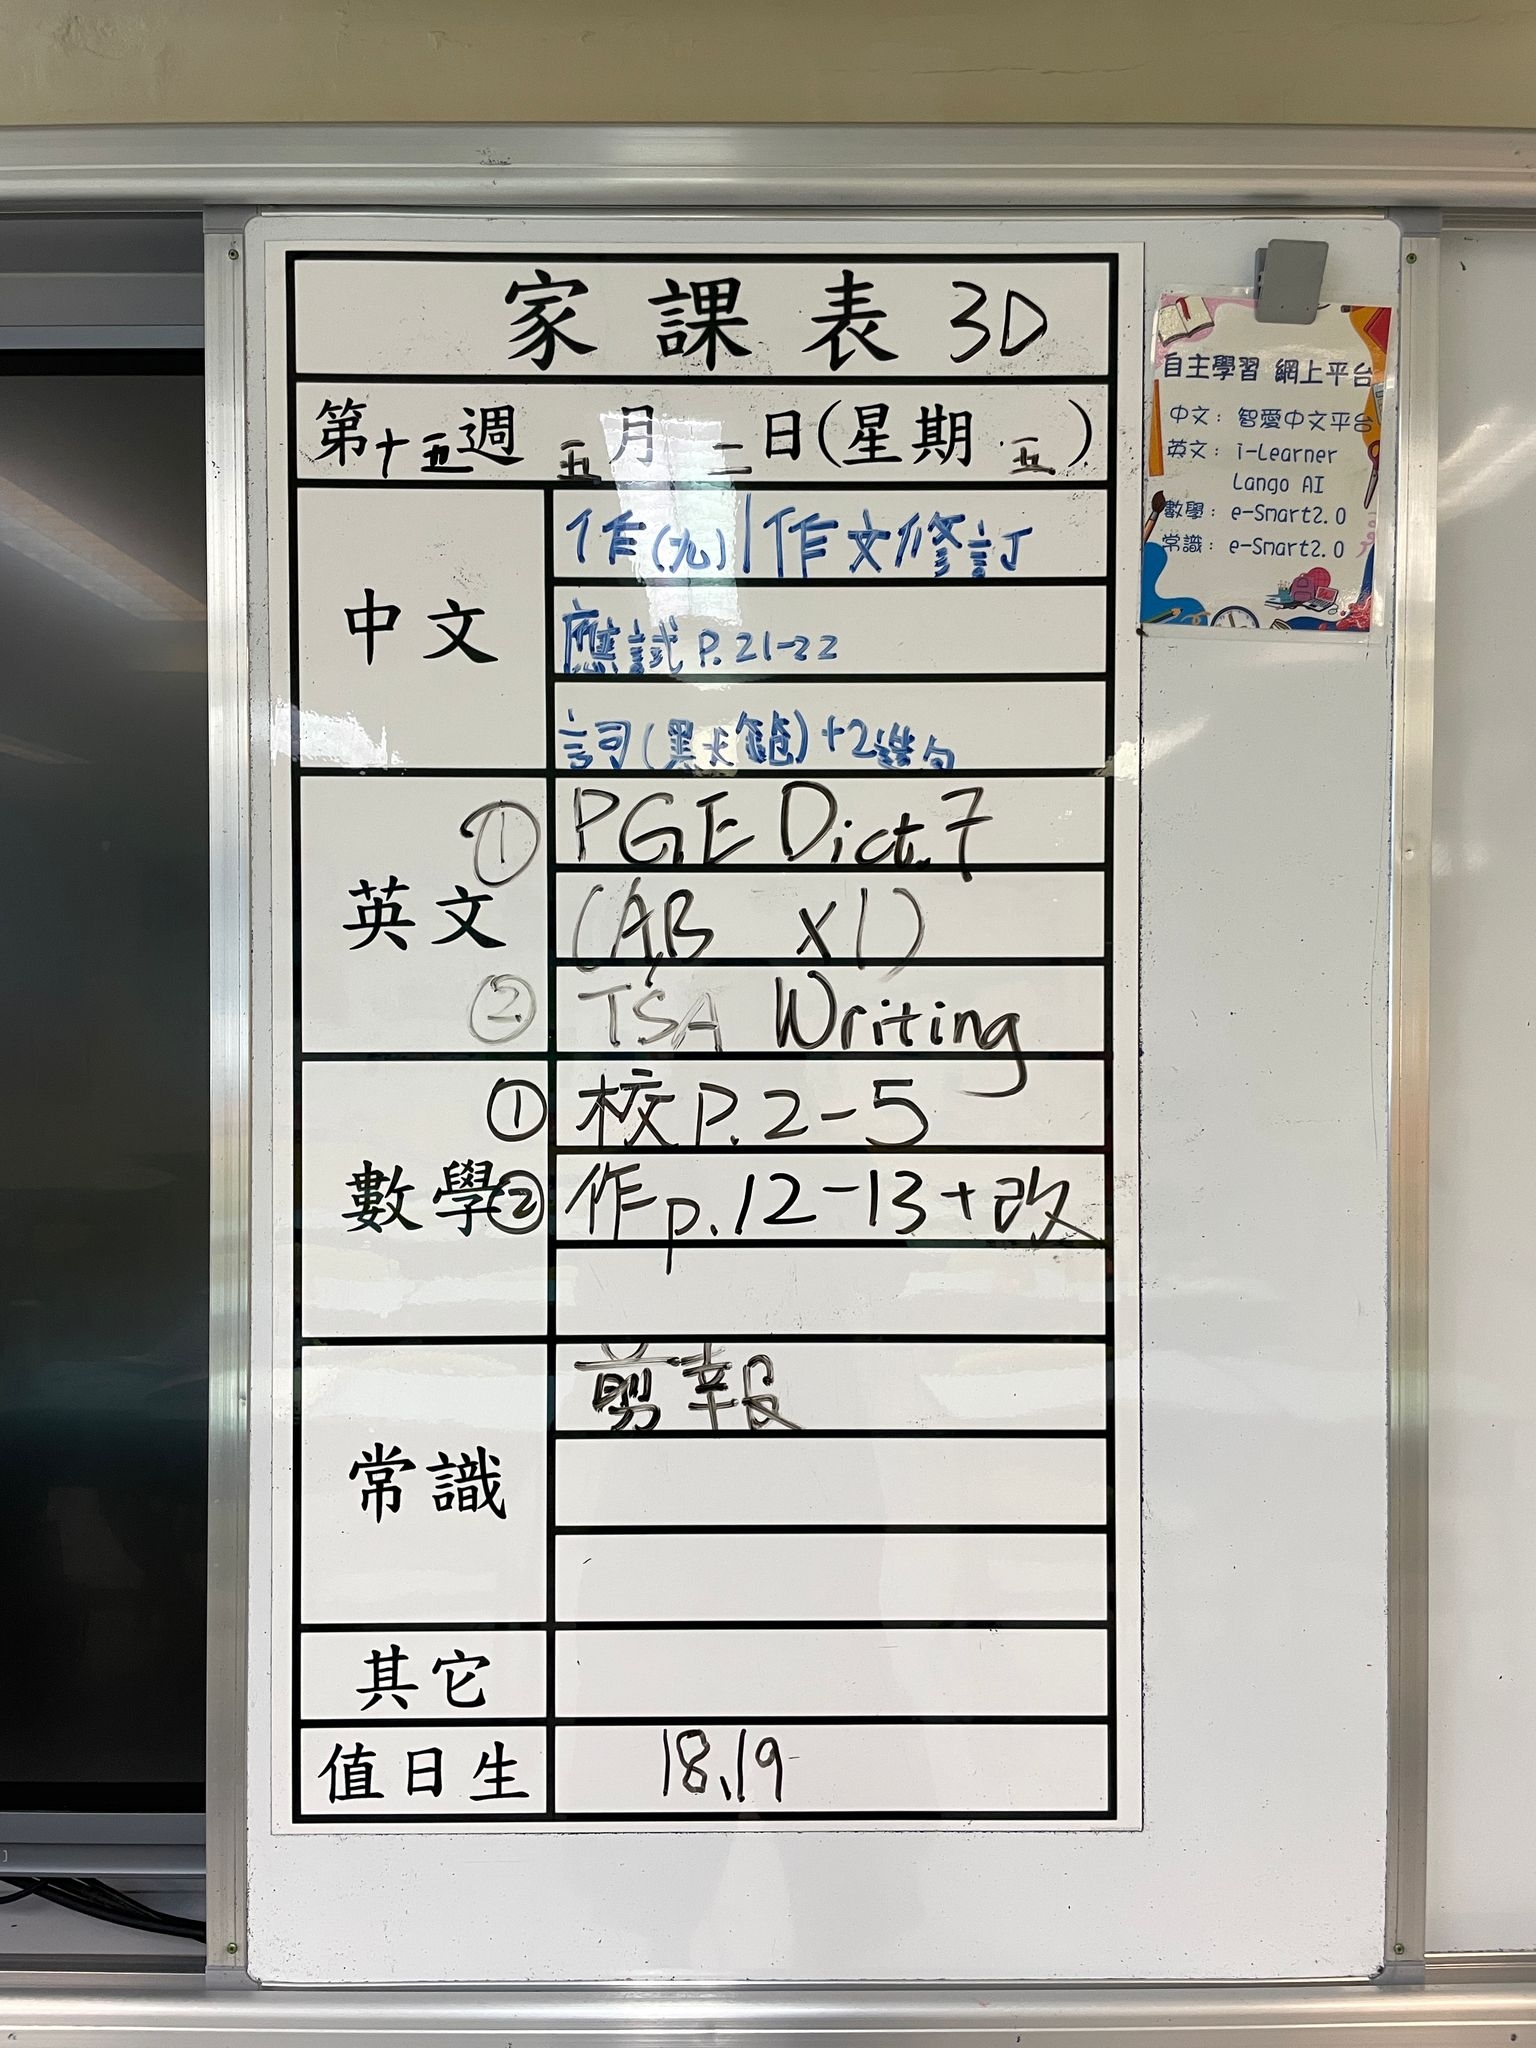 家課表 3D
第十五週 五月二日(星期五)
中文
作(九)|作文修訂
應試 P.21-22
詞(黑天鵝)+2造句
英文
① PGE Dict. 7
(A,B x1)
② TSA Writing
數學
① 校 P.2-5
② 作 p.12-13+改
常識
剪報
其它
值日生
18,19
自主學習 網上平台
中文：智愛中文平台
英文：i-Learner
Lango AI
數學：e-Smart2.0
常識：e-Smart2.0